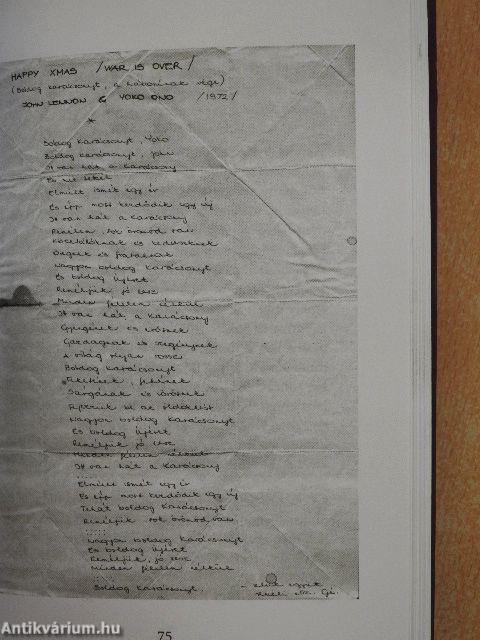 HAPPY XMAS /WAR IS OVER/
(Boldog karácsonyt, a háborúnak vége)
JOHN LENNON & YOKO ONO /1972/
*
Boldog karácsonyt, Yoko
Boldog karácsonyt, John
Itt van hát a karácsony
És mit tettél
Elmúlt ismét egy év
És épp most kezdődik egy új
Itt van hát a karácsony
Remélem, sok örömöd van
Közelállóknak és kedveseknek
Öregek és fiatalnak
Nagyon boldog karácsonyt
És boldog újévet
Reméljük, jó lesz
Minden félelem nélkül
Itt van hát a karácsony
Gyengének és erősnek
Gazdagnak és szegénynek
A világ olyan rossz
Boldog karácsonyt
Feketének, fehérnek
Sárgának és vörösnek
Fejezzük be az öldöklést
Nagyon boldog karácsonyt
És boldog újévet
Reméljük jó lesz
Minden félelem nélkül
Itt van hát a karácsony
.....
Elmúlt ismét egy év
És épp most kezdődik egy új
Tehát boldog karácsonyt
Reméljük sok örömöd van
.....
Nagyon boldog karácsonyt
És boldog újévet
Reméljük, jó lesz
Minden félelem nélkül
.....
Boldog karácsonyt.
75
Antikvárium.hu